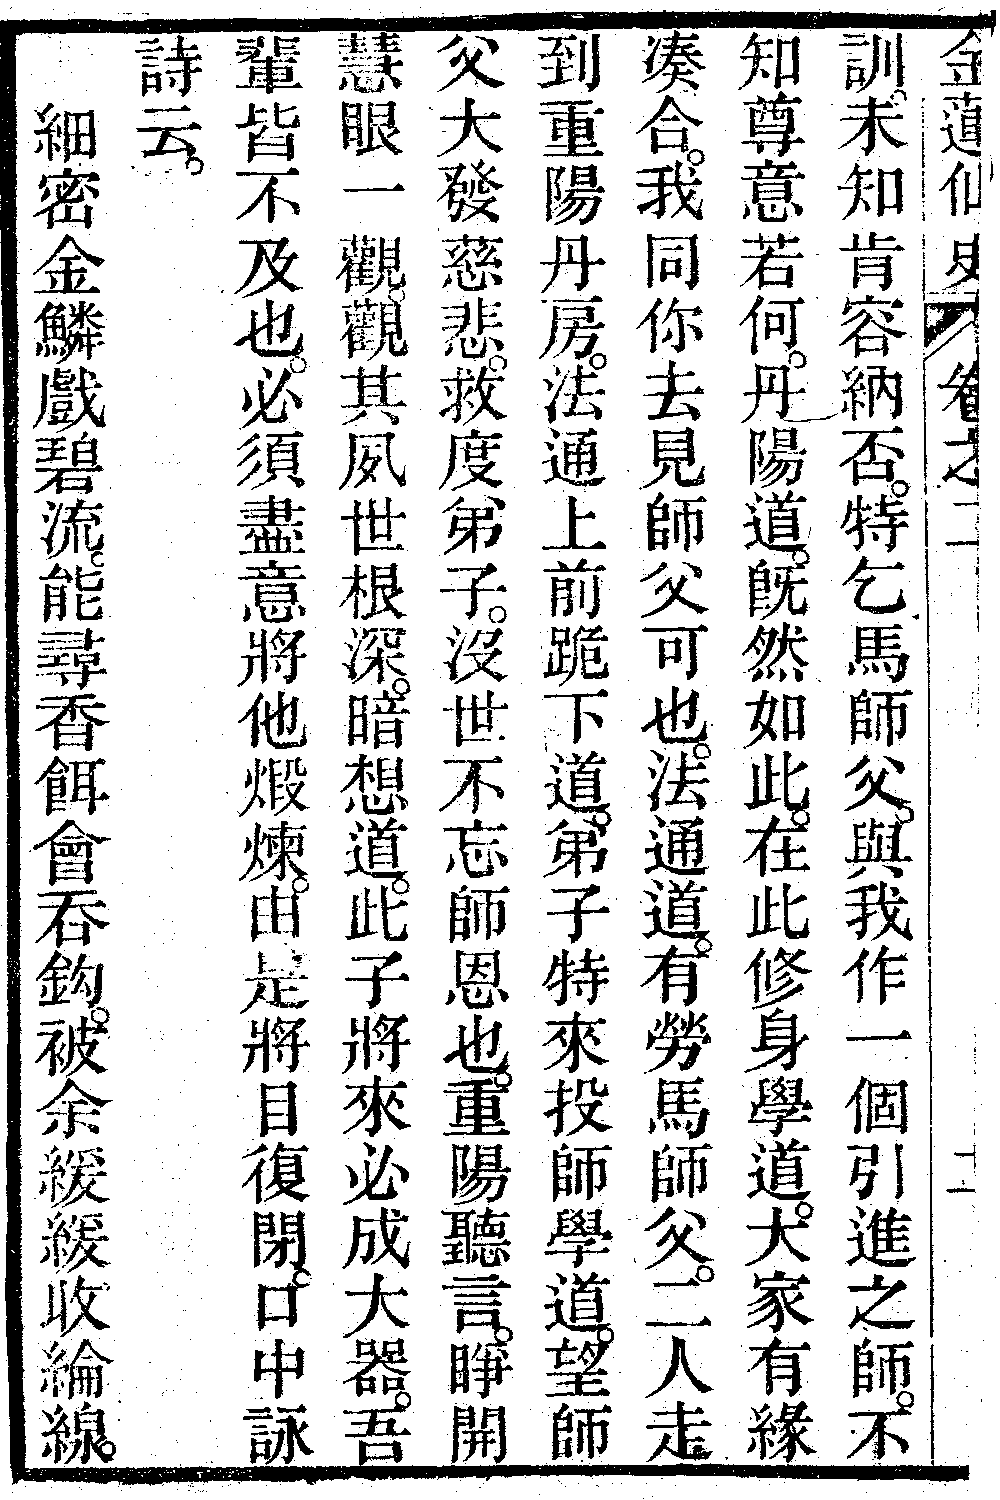 金蓮仙史 卷之二 十二
訓。未知肯容納否。特乞馬師父。與我作一個引進之師。不
知尊意若何。丹陽道。旣然如此。在此修身學道。大家有緣
湊合。我同你去見師父可也。法通道。有勞馬師父。二人走
到重陽丹房。法通上前跪下道。弟子特來投師學道。望師
父大發慈悲。救度弟子。沒世不忘師恩也。重陽聽言。睜開
慧眼一觀。觀其夙世根深。暗想道。此子將來必成大器。吾
輩皆不及也。必須盡意將他煅煉。由是將目復閉。口中詠
詩云。
細密金鱗戲碧流。能尋香餌會吞鈎。被余緩緩收綸線。